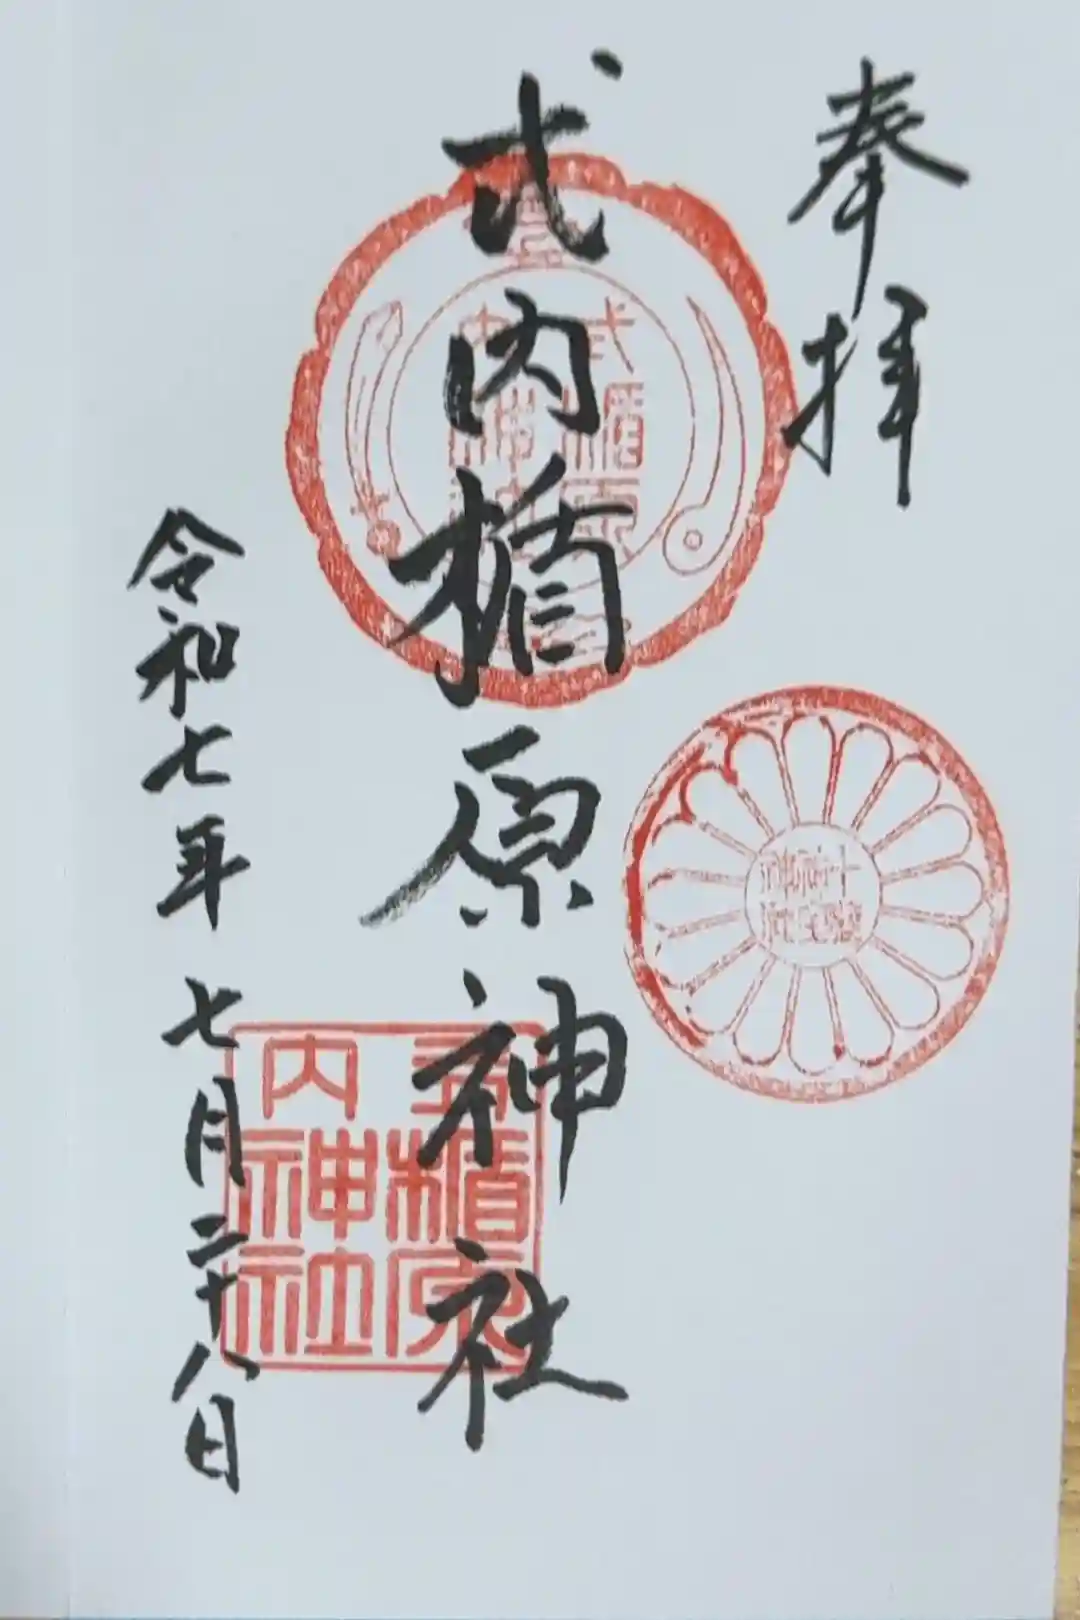 奉拝
式内楯原神社
令和七年七月二十八日
式楯原
内神社
式楯原
内神社